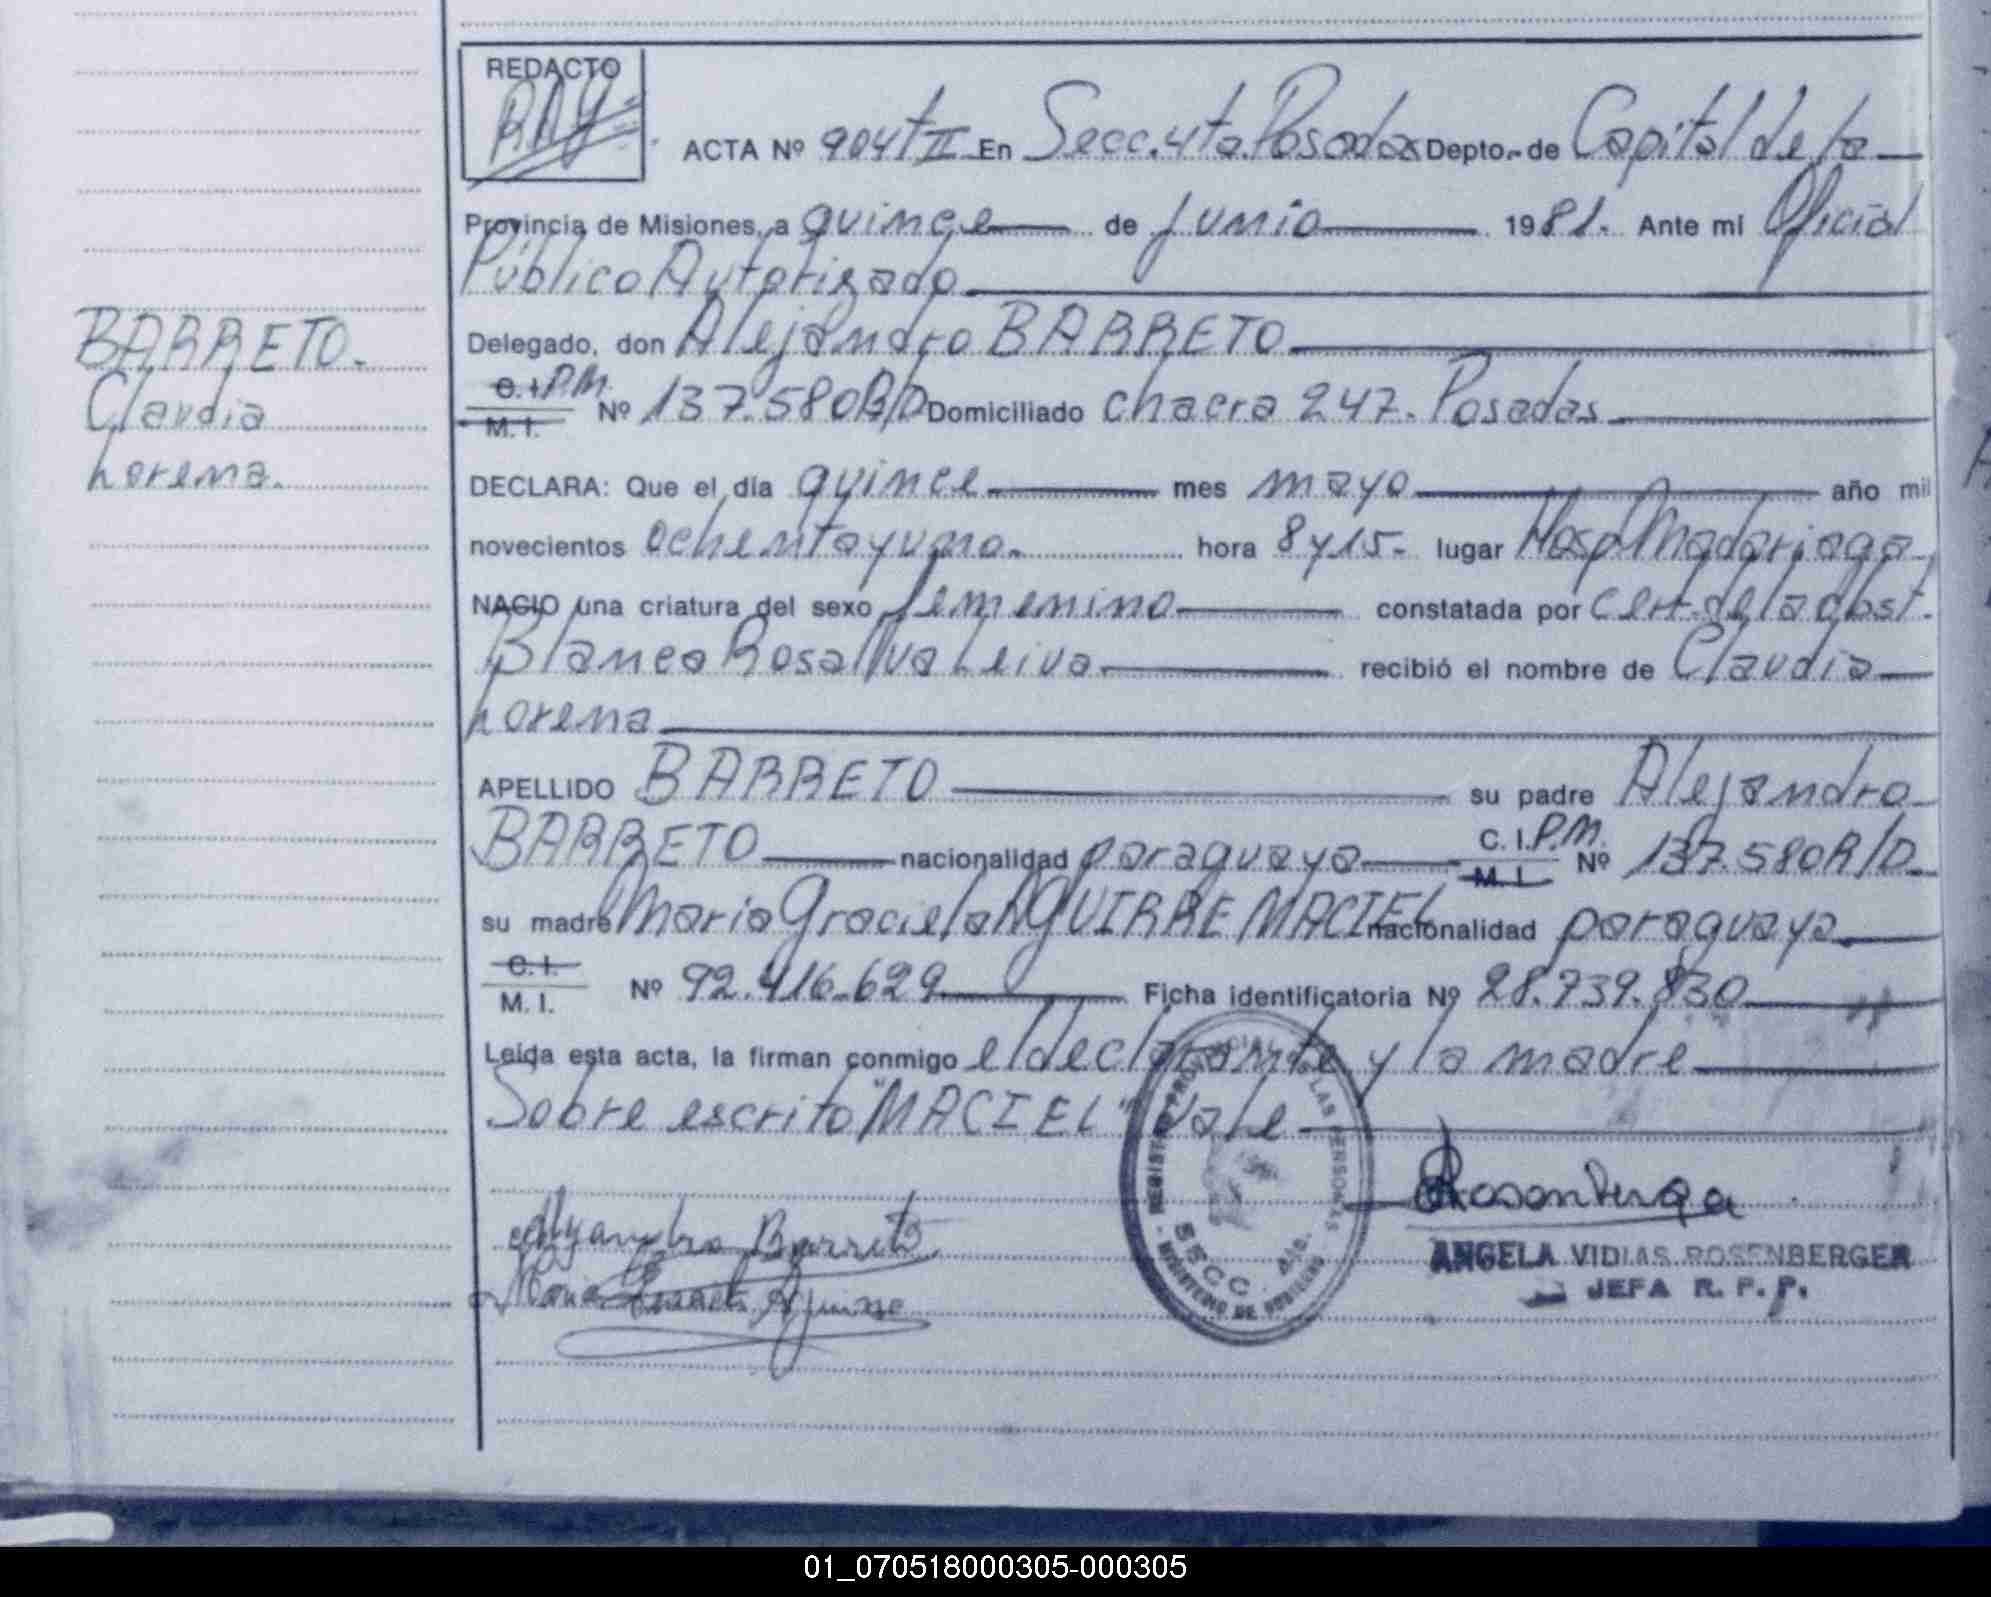 REDACTO
ACTA Nº 904 t II En Secc. 4ta. Posadas Depto. de Capital de la
Provincia de Misiones, a quince de junio 1981. Ante mi Oficial
Público Autorizado
Delegado, don Alejandro BARRETO
C.I. P.M.
M. I. Nº 137.580 R/D Domiciliado chacra 247. Posadas
BARRETO.
Claudia
Lorena.
DECLARA: Que el día quince mes mayo año mil
novecientos ochenta y uno. hora 8 y 15. lugar Hosp Madariaga
NACIO una criatura del sexo femenino constatada por cert. de la obst.
Blanca Rosa Leiva recibió el nombre de Claudia
Lorena
APELLIDO BARRETO su padre Alejandro
BARRETO nacionalidad paraguaya C. I. P.M.
M. I. Nº 137.580 R/D
su madre Maria Graciela AGUIRRE MACIEL nacionalidad paraguaya
C. I.
M. I. Nº 92.416.629 Ficha identificatoria Nº 28.739.830
Leída esta acta, la firman conmigo el declarante y la madre
Sobre escrito "MACIEL" Vale
Alejandro Barreto
Maria Graciela Aguirre
REGISTRO PROVINCIAL DE LAS PERSONAS
SECC. 4ta.
MINISTERIO DE GOBIERNO
Rosenberger
ANGELA VIDIAS ROSENBERGER
JEFA R. P. P.
01_070518000305-000305